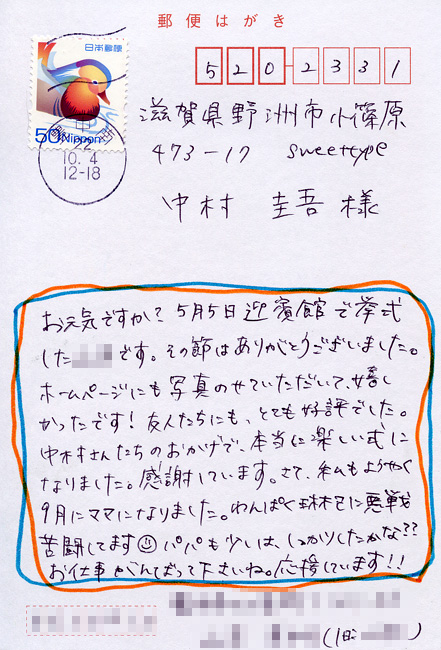 郵便はがき
日本郵便
50 NIPPON
22
10.4
12-18
520-2331
滋賀県野洲市小篠原
473-17 sweettype
中村 圭吾 様
お元気ですか? 5月5日迎賓館で挙式
した です。その節はありがとうございました。
ホームページにも写真のせていただいて、嬉し
かったです! 友人たちにも、とても好評でした。
中村さんたちのおかげで、本当に楽しい式に
なりました。感謝しています。さて、私もようやく
9月にママになりました。わんぱく に悪戦
苦闘してます パパも少しは、しっかりしたかな??
お仕事がんばって下さいね。応援しています!!
(旧